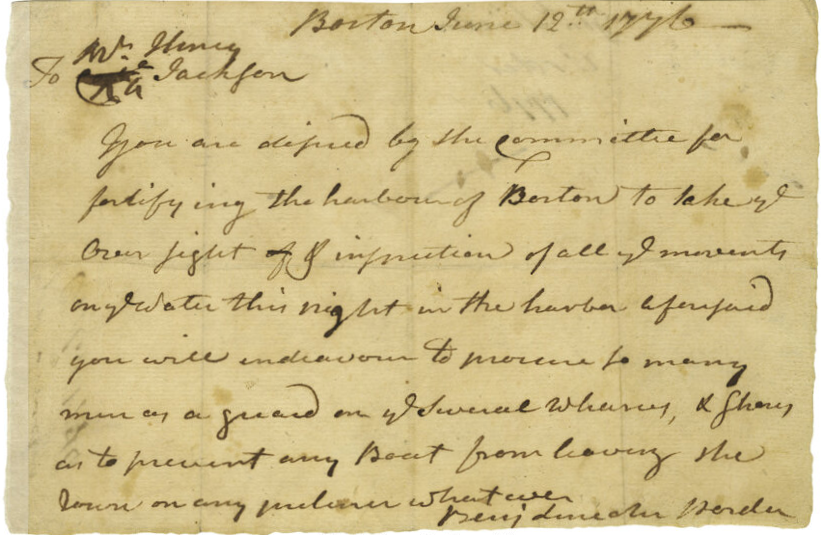 Boston June 12th 1776
Mr. Henry
To Jackson
You are desired by the committee for
fortifying the harbour of Boston to take ye
Over sight of & inspection of all ye movents
on ye Water this night in the harbor aforesaid
you will indeavour to procure so many
men as a guard on ye Several Wharves, & Shores
as to prevent any Boat from leaving the
Town on any pretence whatever
Benj Lincoln Order